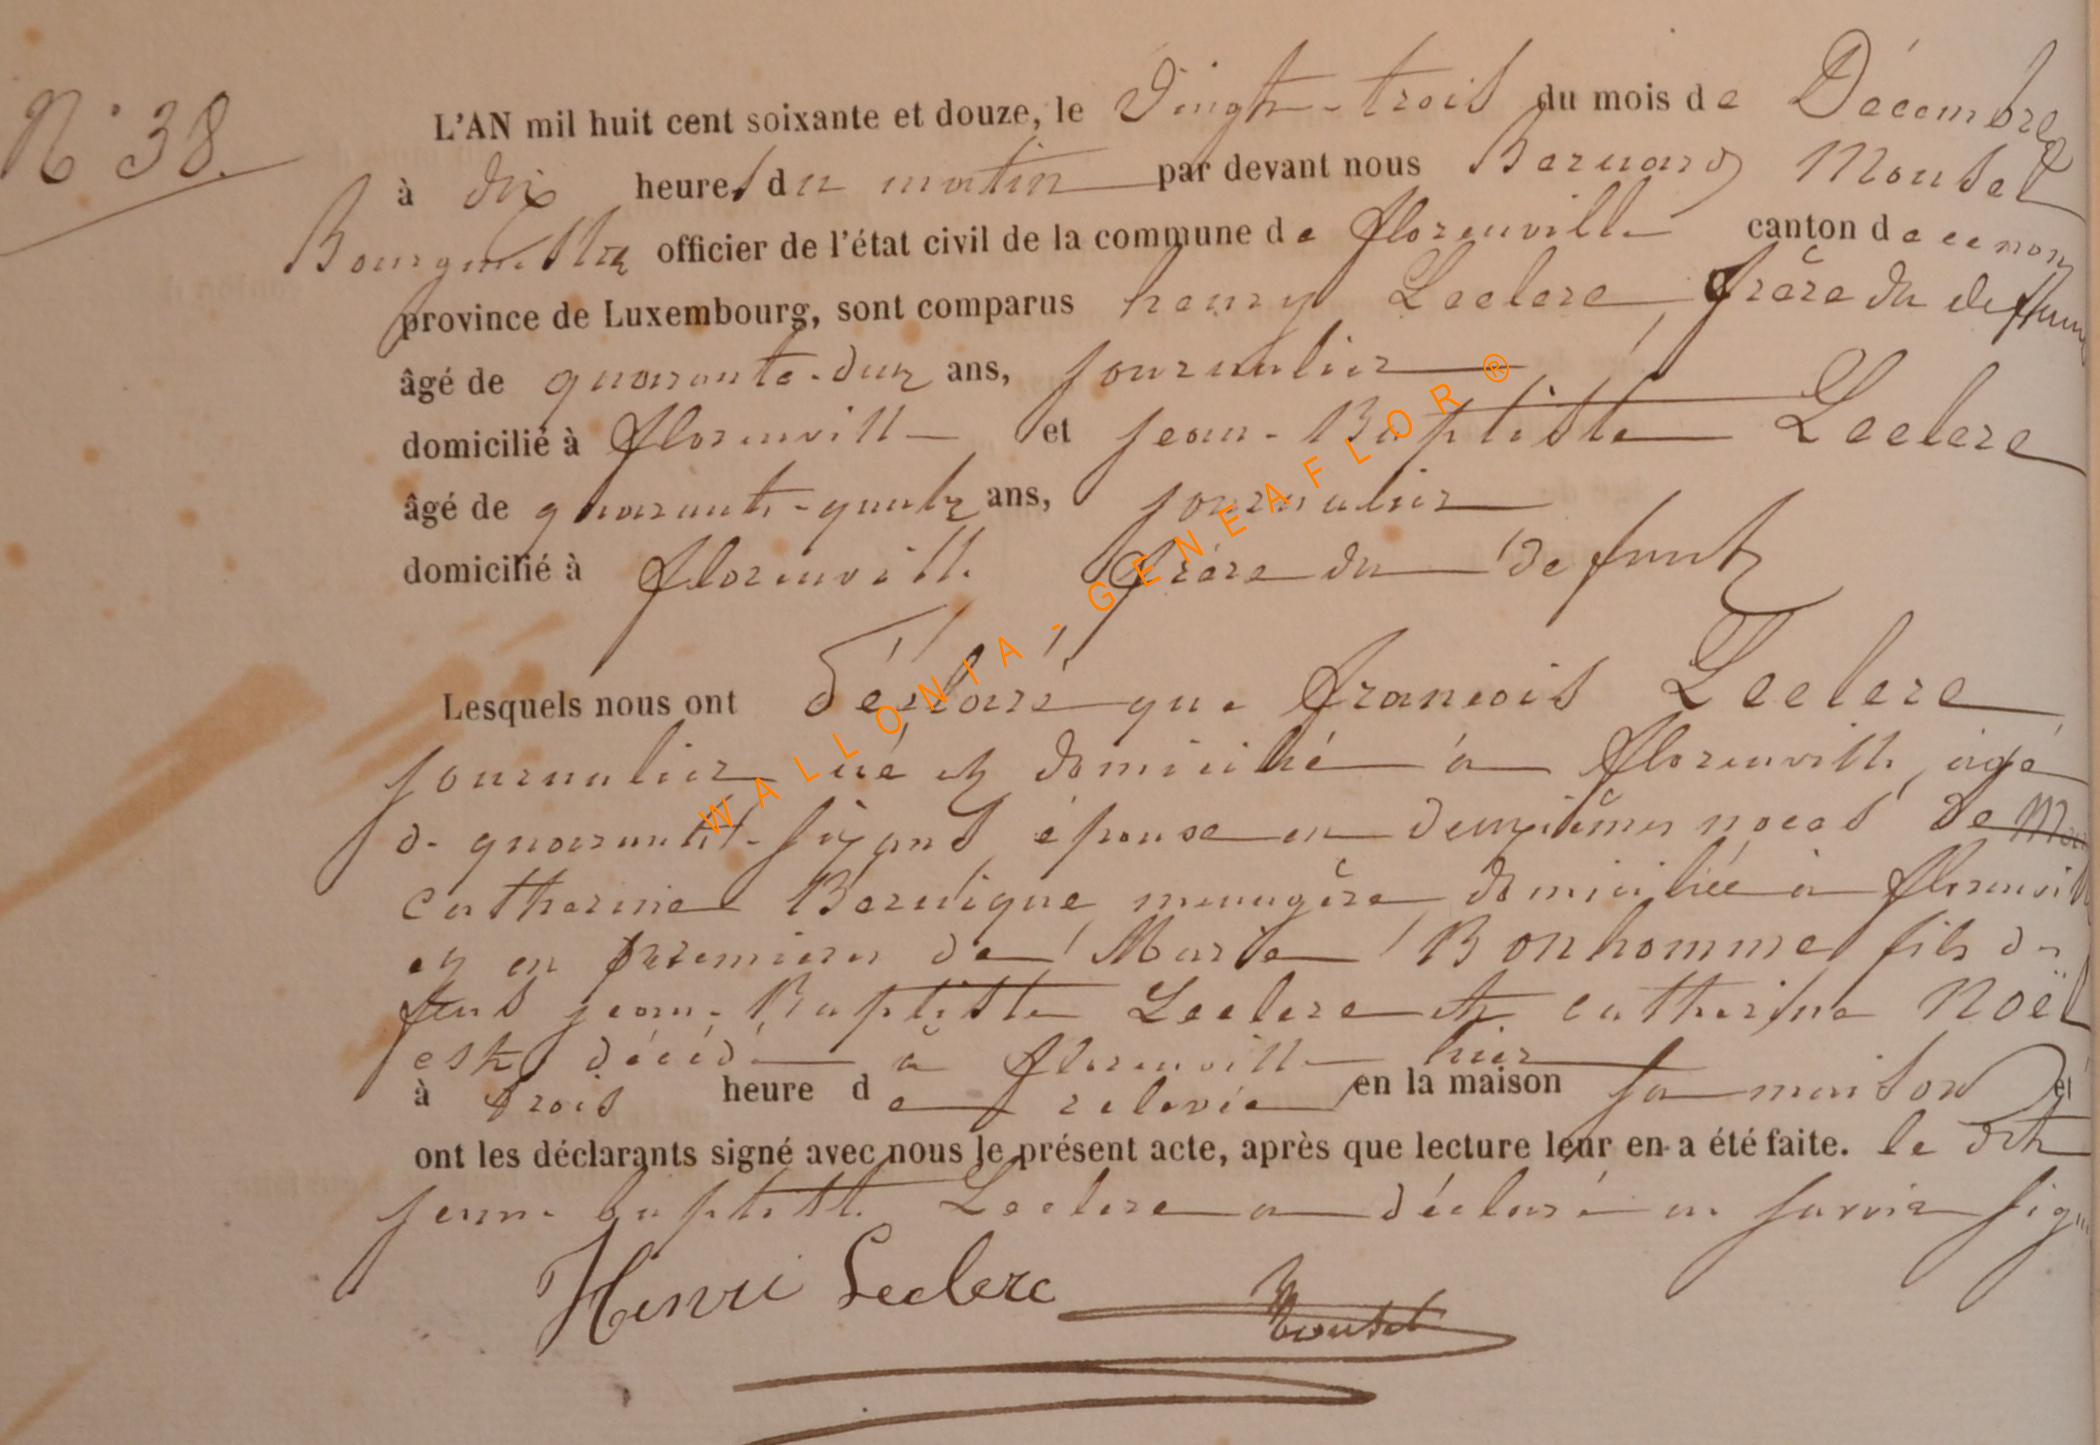 N° 38.
L'AN mil huit cent soixante et douze, le Vingt-trois du mois de Décembre
à dix heures du matin par devant nous Bernard Mousel
Bourgmestre officier de l'état civil de la commune de florenville canton de ce nom
province de Luxembourg, sont comparus henry Leclerc, frère du deffunt
âgé de quarante-deux ans, journalier
domicilié à florenville et jean-Baptiste Leclerc
âgé de quarante-quatre ans, journalier
domicilié à florenville frère du defunt
Lesquels nous ont déclaré que françois Leclerc
journalier né et domicilié à florenville, agé
de quarante-six ans époux en deuxièmes noces de
catherine Bernique, menagère, domiciliée à florenville
et en premières de Marie Bonhomme fils de
feus jean-Baptiste Leclerc et catherine Noël
est décédé à florenville hier
à trois heure de relevée en la maison sa maison et
ont les déclarants signé avec nous le présent acte, après que lecture leur en a été faite. le dit
jean-baptiste Leclerc a déclaré ne savoir signer
Henri Leclerc Mousel
WALLONIA-GENEAFLOR®